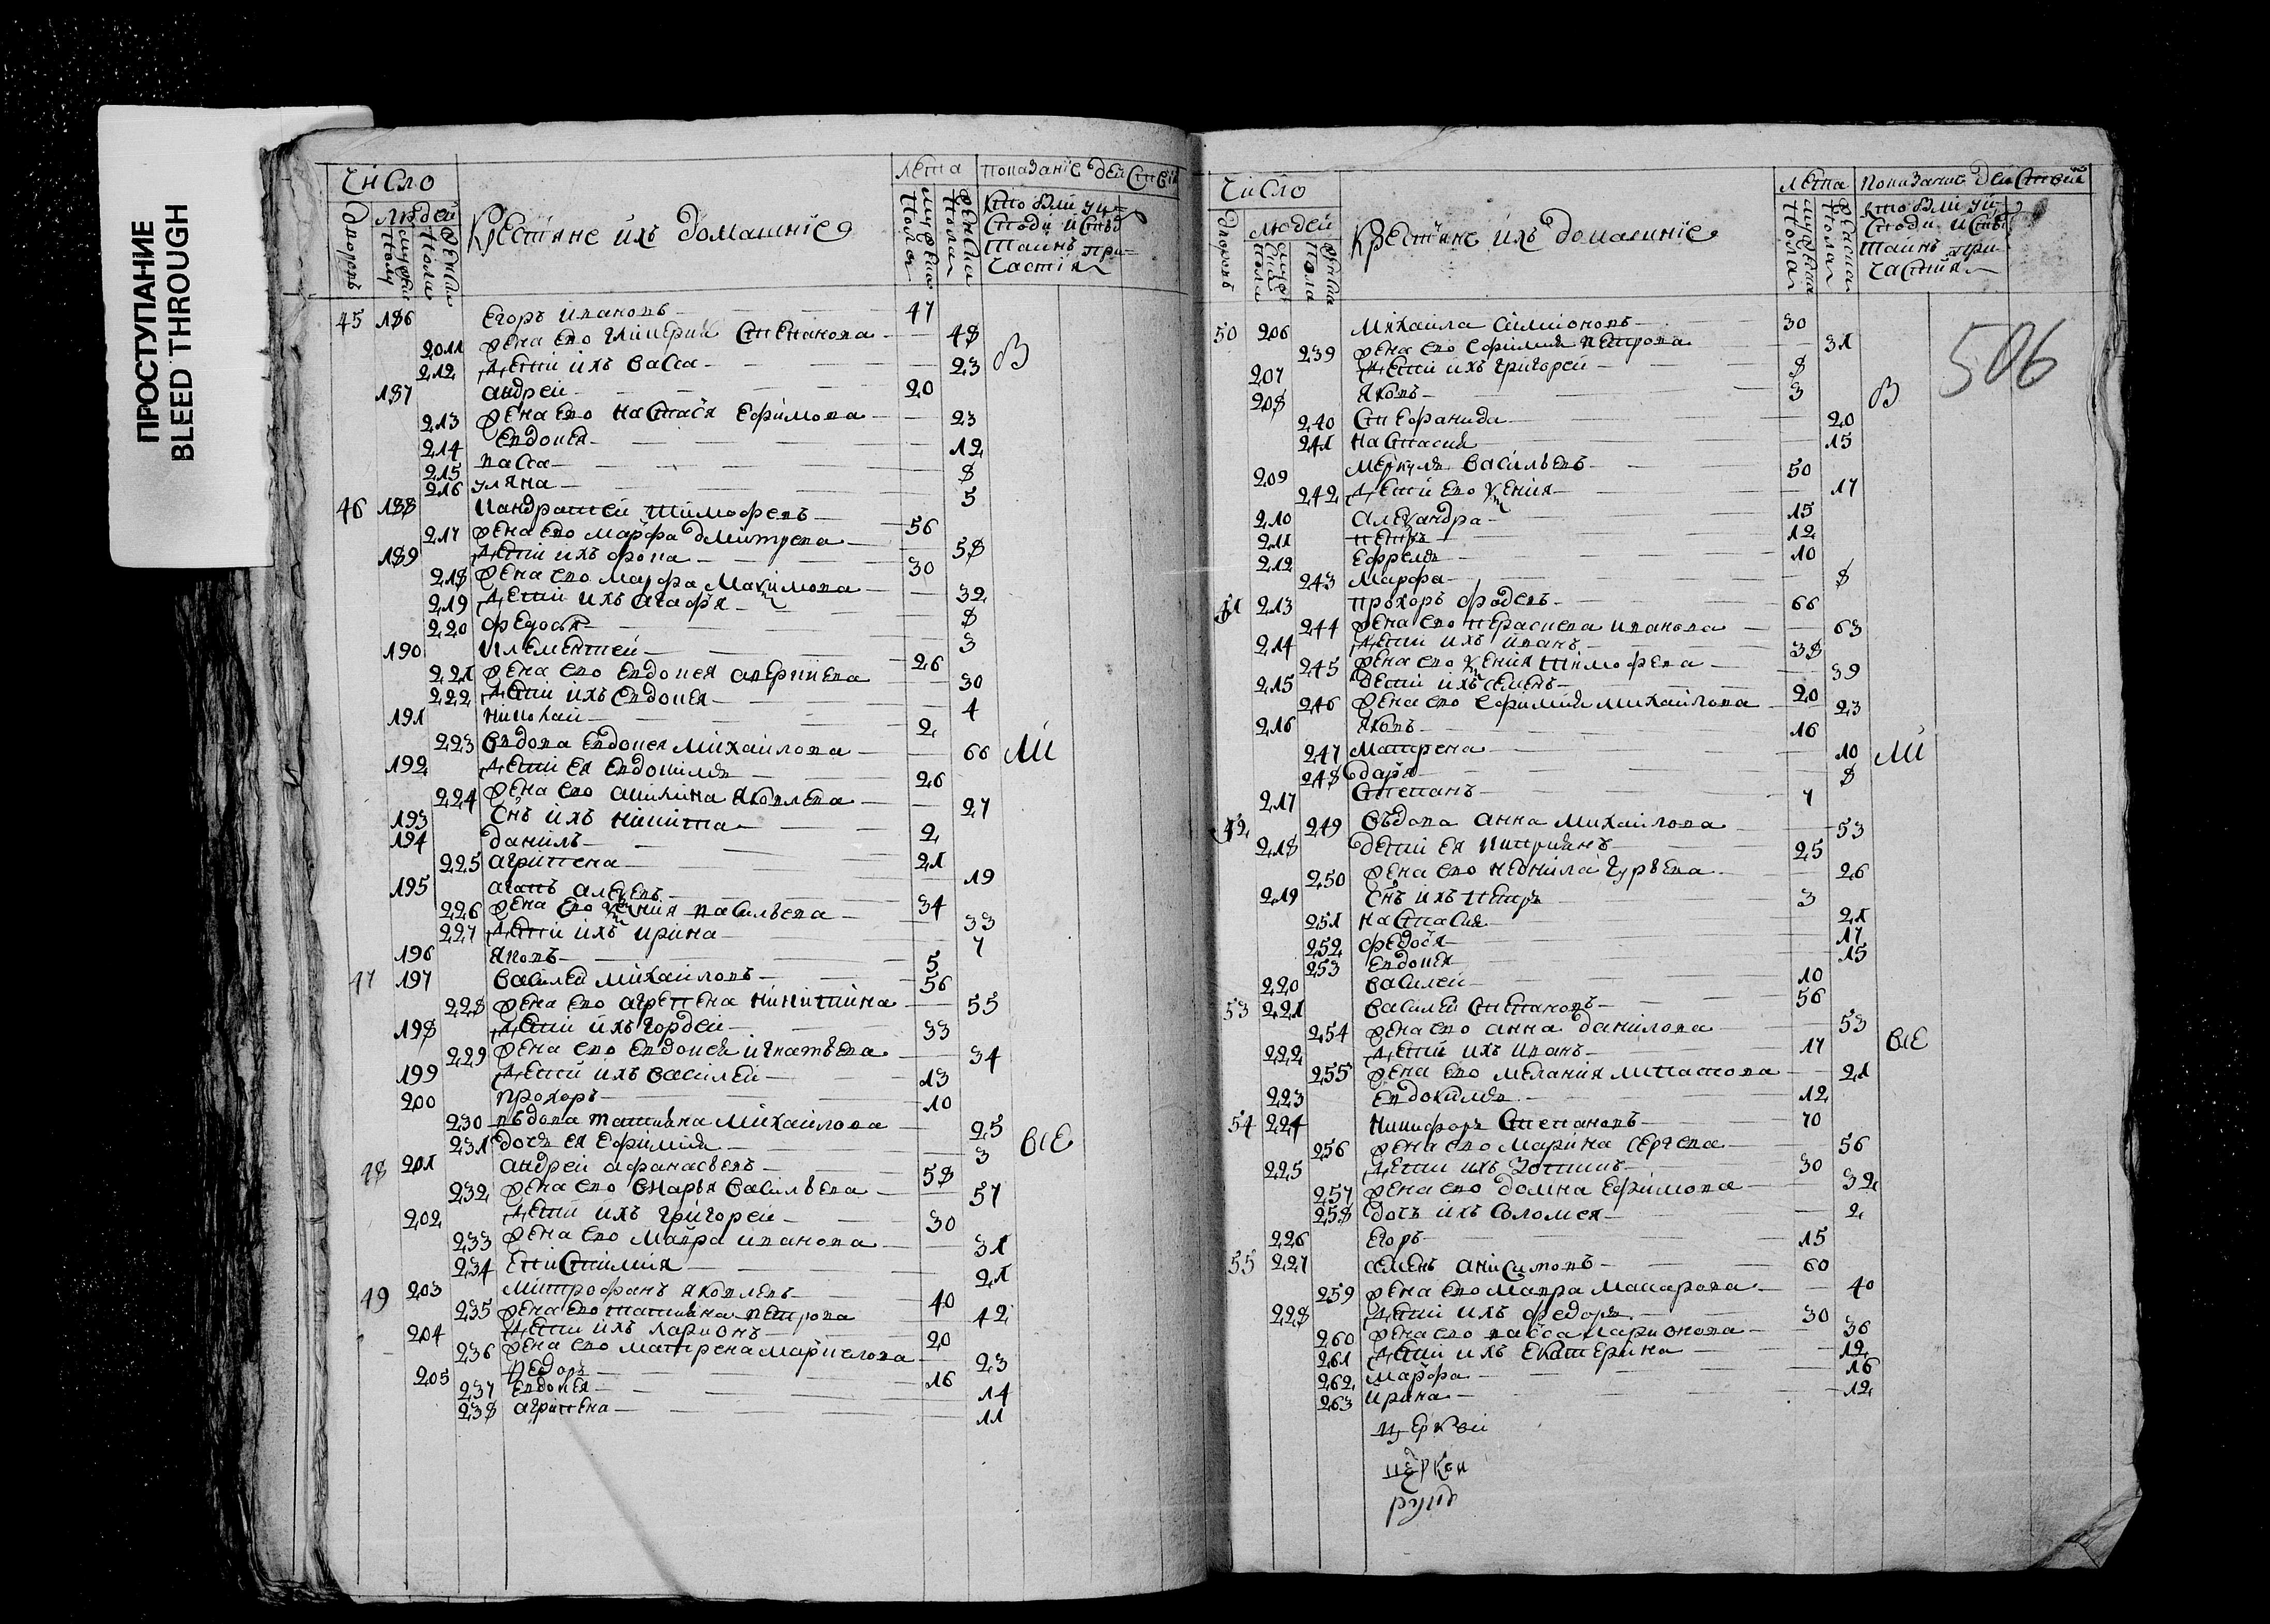 ПРОСТУПАНИЕ
BLEED THROUGH
Число
Крестяне ихъ домашние
Лета
показание действ
дворовъ
людей
45 186 Егоръ ивановъ 47
2011 жена ево Гликерия Степанова 48
212 дети ихъ васса 23 В
187 андрей 20
213 жена ево настася Ефимова 23
214 евдокея 12
215 васса 8
216 уляна 5
46 188 кандратей тимофевъ 56
217 жена ево марфа дмитрева 58
189 дети ихъ фока 30
218 жена ево марфа Макимова 32
219 дети ихъ агафя 8
220 федося 3
190 клементей 26
221 жена ево евдокея аверкиева 30
222 дети ихъ евдокея 4
191 николай 2
223 вдова евдокея михайлова 66 ли
192 дети ея евдокимъ 26
224 жена ево акилина яковлева 27
193 снъ ихъ никита 2
194 данилъ 21
225 агрипена 19
195 агапъ алексевъ 34
226 жена ево ксения васильева 33
227 дети ихъ ирина 7
196 яковъ 5
47 197 василей михайловъ 56
228 жена ево агрепена никитина 55
198 дети ихъ гордей 33
229 жена ево евдокея игнатьева 34
199 дети ихъ василей 13
200 прохоръ 10
230 въдова татияна михайлова 25
231 дочъ ея ефимия 3 все
48 201 андрей афанасьевъ 58
232 жена ево дарья васильева 57
202 дети ихъ григорей 30
233 жена ево мавра иванова 31
234 епистимия 21
49 203 митрофанъ яковлевъ 40
235 жена ево татияна петрова 42
204 дети ихъ ларионъ 20
236 жена ево матрена маркелова 23
205 федоръ 16
237 евдокея 14
238 агрипена 11
Число
Крестяне ихъ домашние
лета
показание действей
дворовъ
людей
506
50 206 михайла симионовъ 30
239 жена ево ефимия петрова 31
207 дети ихъ григорей 8
208 яковъ 3 В
240 стефанида 20
241 настасия 15
209 меркулъ васильевъ 50
242 дети ево ксения 17
210 александра 15
211 петръ 12
212 ефремъ 10
243 марфа 8
51 213 прохоръ фадевъ 66
244 жена ево параскева иванова 63
214 дети ихъ иванъ 38
245 жена ево ксения тимофева 39
215 дети ихъ семенъ 20
246 жена ево ефимия михайлова 23
216 яковъ 16
247 матрена 10 ли
248 даря 8
217 степанъ 7
52 249 въдова анна михайлова 53
218 дети ея киприянъ 25
250 жена ево неонила гурьева 26
219 снъ ихъ петръ 3
251 настасия 21
252 федося 17
253 евдокея 15
220 василей 10
53 221 василей степановъ 56
254 жена ево анна данилова 53
222 дети ихъ иванъ 17 все
255 жена ево мелания 21
223 евдокимъ 12
54 224 никифоръ степановъ 70
256 жена ево марина сергева 56
225 дети ихъ зотикъ 30
257 жена ево домна ефимова 32
258 дочъ ихъ соломея 2
226 егоръ 15
55 227 семенъ анисимовъ 60
259 жена ево мавра макарова 40
228 дети ихъ федоръ 30
260 жена ево васса ларионова 36
261 дети ихъ екатерина 12
262 марфа 16
263 ирина 12
церквей
церкви